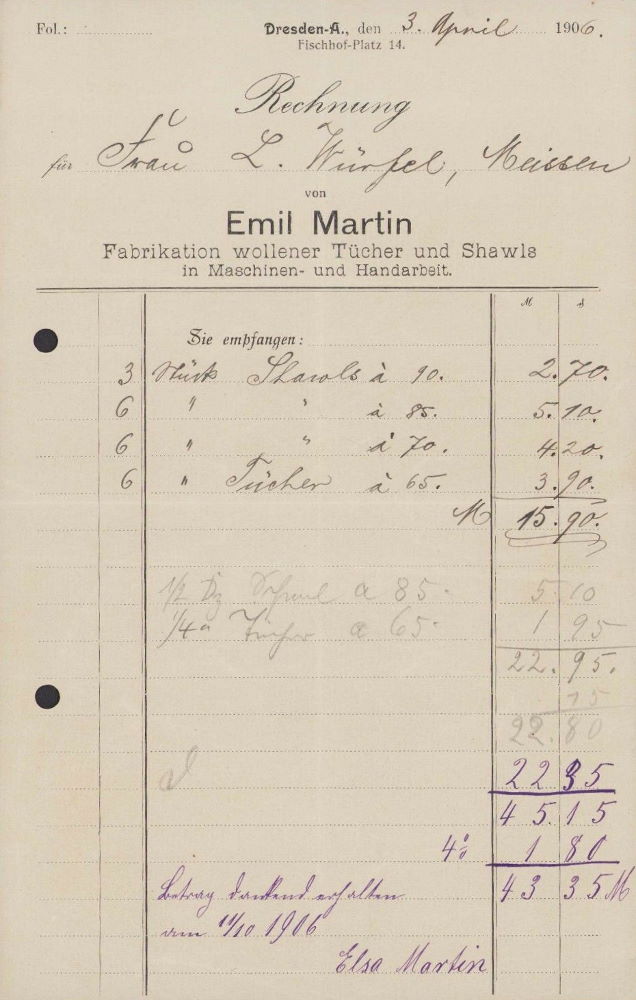 Fol.: Dresden-A., den 3. April 1906.
Fischhof-Platz 14.
Rechnung
für Frau L. Würfel, Meissen
von
Emil Martin
Fabrikation wollener Tücher und Shawls
in Maschinen- und Handarbeit.
M ₰
Sie empfangen:
3 Stück Shawls à 90. 2.70.
6 " " à 85. 5.10.
6 " " à 70. 4.20.
6 " Tücher à 65. 3.90.
M 15.90.
1/2 Dz Schawl a 85. 5 10
1/4 " Tücher a 65. 1 95
22.95.
15
22.80
22 35
45.15
4% 1 80
Betrag dankend erhalten 43 35 M
am 11/10 1906
Elsa Martin